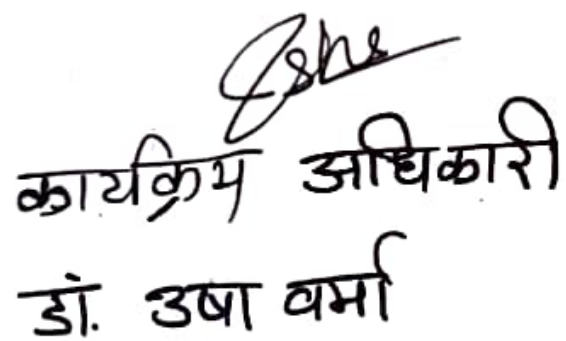 कार्यक्रम अधिकारी
डां. उषा वर्मा